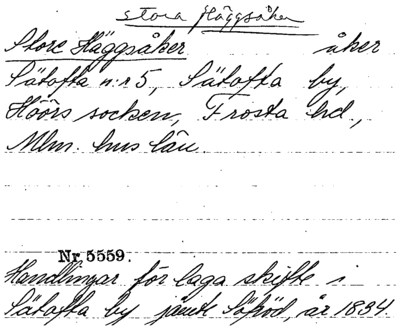 Stora Häggsåker
Store Häggsåker åker
Sätofta n:r 5, Sätofta by,
Höörs socken, Frosta hd,
Mlm. hus län.
Nr 5559.
Handlingar för laga skifte i
Sätofta by jämte år 1834.